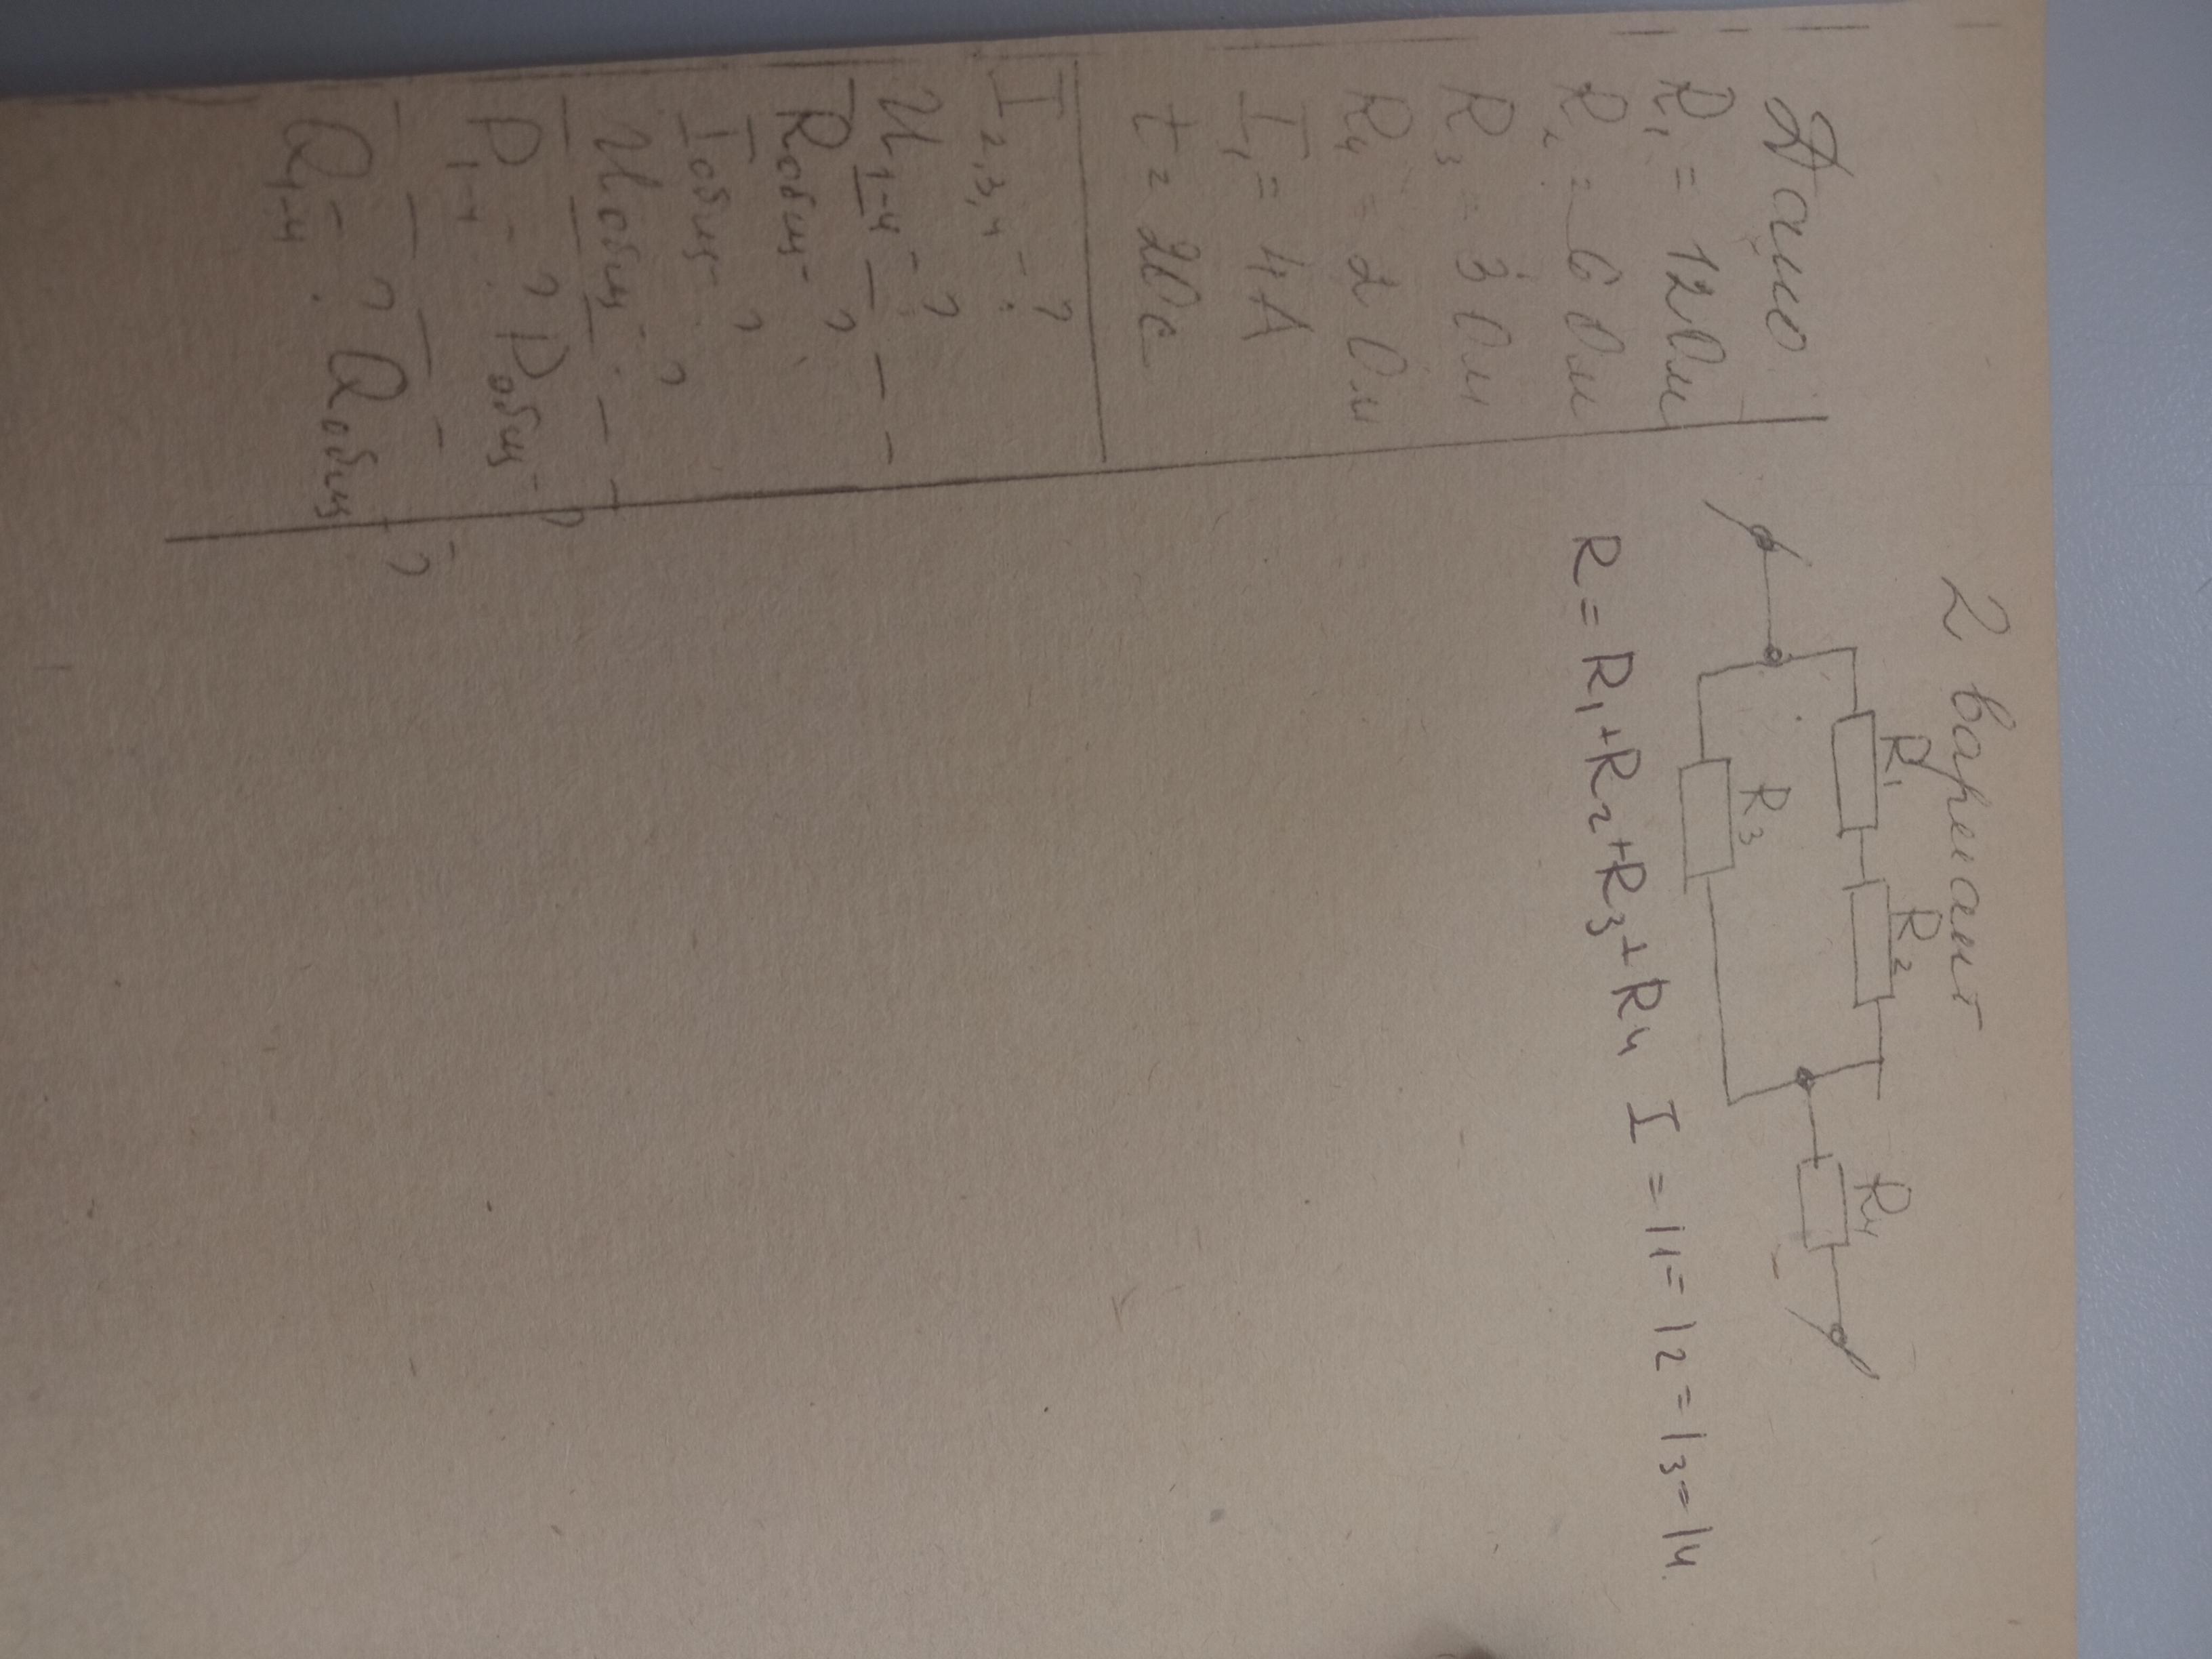 2 вариант
Дано
R₁ = 12 Ом
R₂ = 6 Ом
R₃ = 3 Ом
R₄ = 2 Ом
I₁ = 4 А
t = 20 с
I₂,₃,₄ - ?
U₁₋₄ - ?
Rобщ - ?
Iобщ - ?
Uобщ - ?
P₁₋₄ - ? Pобщ - ?
Q₁₋₄ - ? Qобщ - ?
R₁
R₂
R₃
R₄
R = R₁+R₂+R₃+R₄ I = I₁ = I₂ = I₃ = I₄